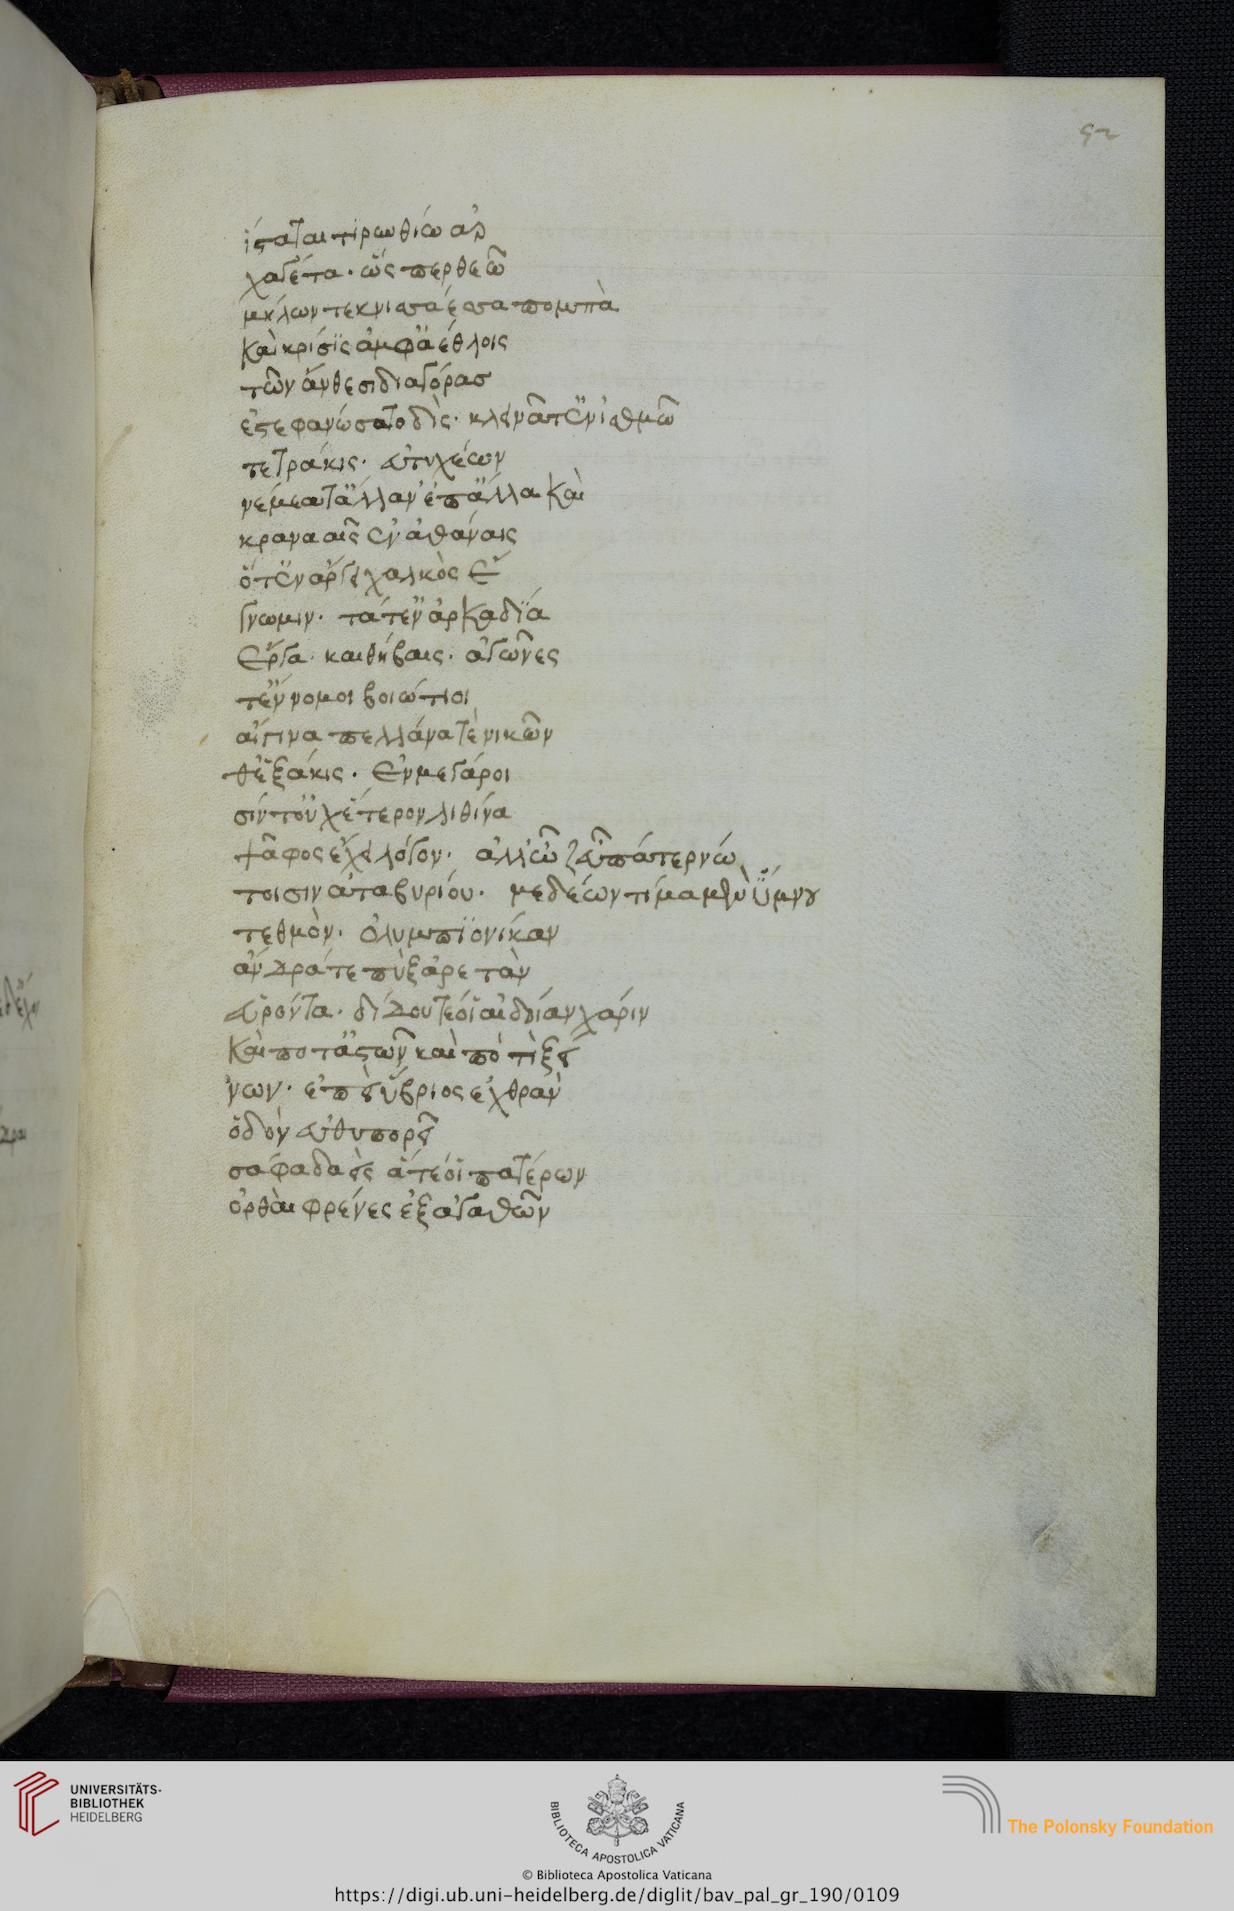 52
ἵσταται τιρωθίω ἀρ
χαγέτα· ὥσπερ θεῶ
μήλων τε κνισαέσσα πομπὰ
καὶ κρίσϊς ἀμφ᾽ ἀέθλοις
τῶν ἄνθεσι διαγόρας
ἐστεφανώσατο δὶς· κλεινᾶτ᾽ ἐν ἰσθμῶ
τετράκις· εὐτυχέων
νεμέατ᾽ ἄλλαν ἐπ᾽ ἄλλα καὶ
κρανααῖς ἐν ἀθάναις
ὅτ᾽ ἐν ἄργει χαλκὸς ἔ
γνωμιν· τά τ᾽ ἐν ἀρκαδΐα
ἔργα· καὶ θήβαις· ἀγῶνες
τ᾽ ἔννομοι βοιώτιοι
αἴγινα πελλάνα τὲ νικῶν
θ᾽ ἑξάκις· ἐν μεγάροι
σίν τ᾽ οὐχ ἕτερον λιθίνα
ψᾶφος ἔχει λόγον· ἀλλ᾽ ὦ ζεῦ πάτερ νώ
τοισιν ἀταβυρίου· μεδέων τίμα μὲν ὕμνου
τεθμὸν· ὀλυμπϊονίκαν
ἄνδρά τε πὺξ ἀρετὰν
εὑρόντα· δίδου τέ οἱ αἰδοίαν χάριν
καὶ ποτ᾽ ἀστῶν καὶ πὸ τὶ ξεί
νων· ἐπεὶ ὕβριος ἐχθρὰν
ὁδὸν εὐθυπορεῖ
σάφα δαεὶς ἅ τέ οἱ πατέρων
ὀρθαὶ φρένες ἐξ ἀγαθῶν
UNIVERSITÄTS-
BIBLIOTHEK
HEIDELBERG
BIBLIOTECA APOSTOLICA VATICANA
The Polonsky Foundation
© Biblioteca Apostolica Vaticana
https://digi.ub.uni-heidelberg.de/diglit/bav_pal_gr_190/0109